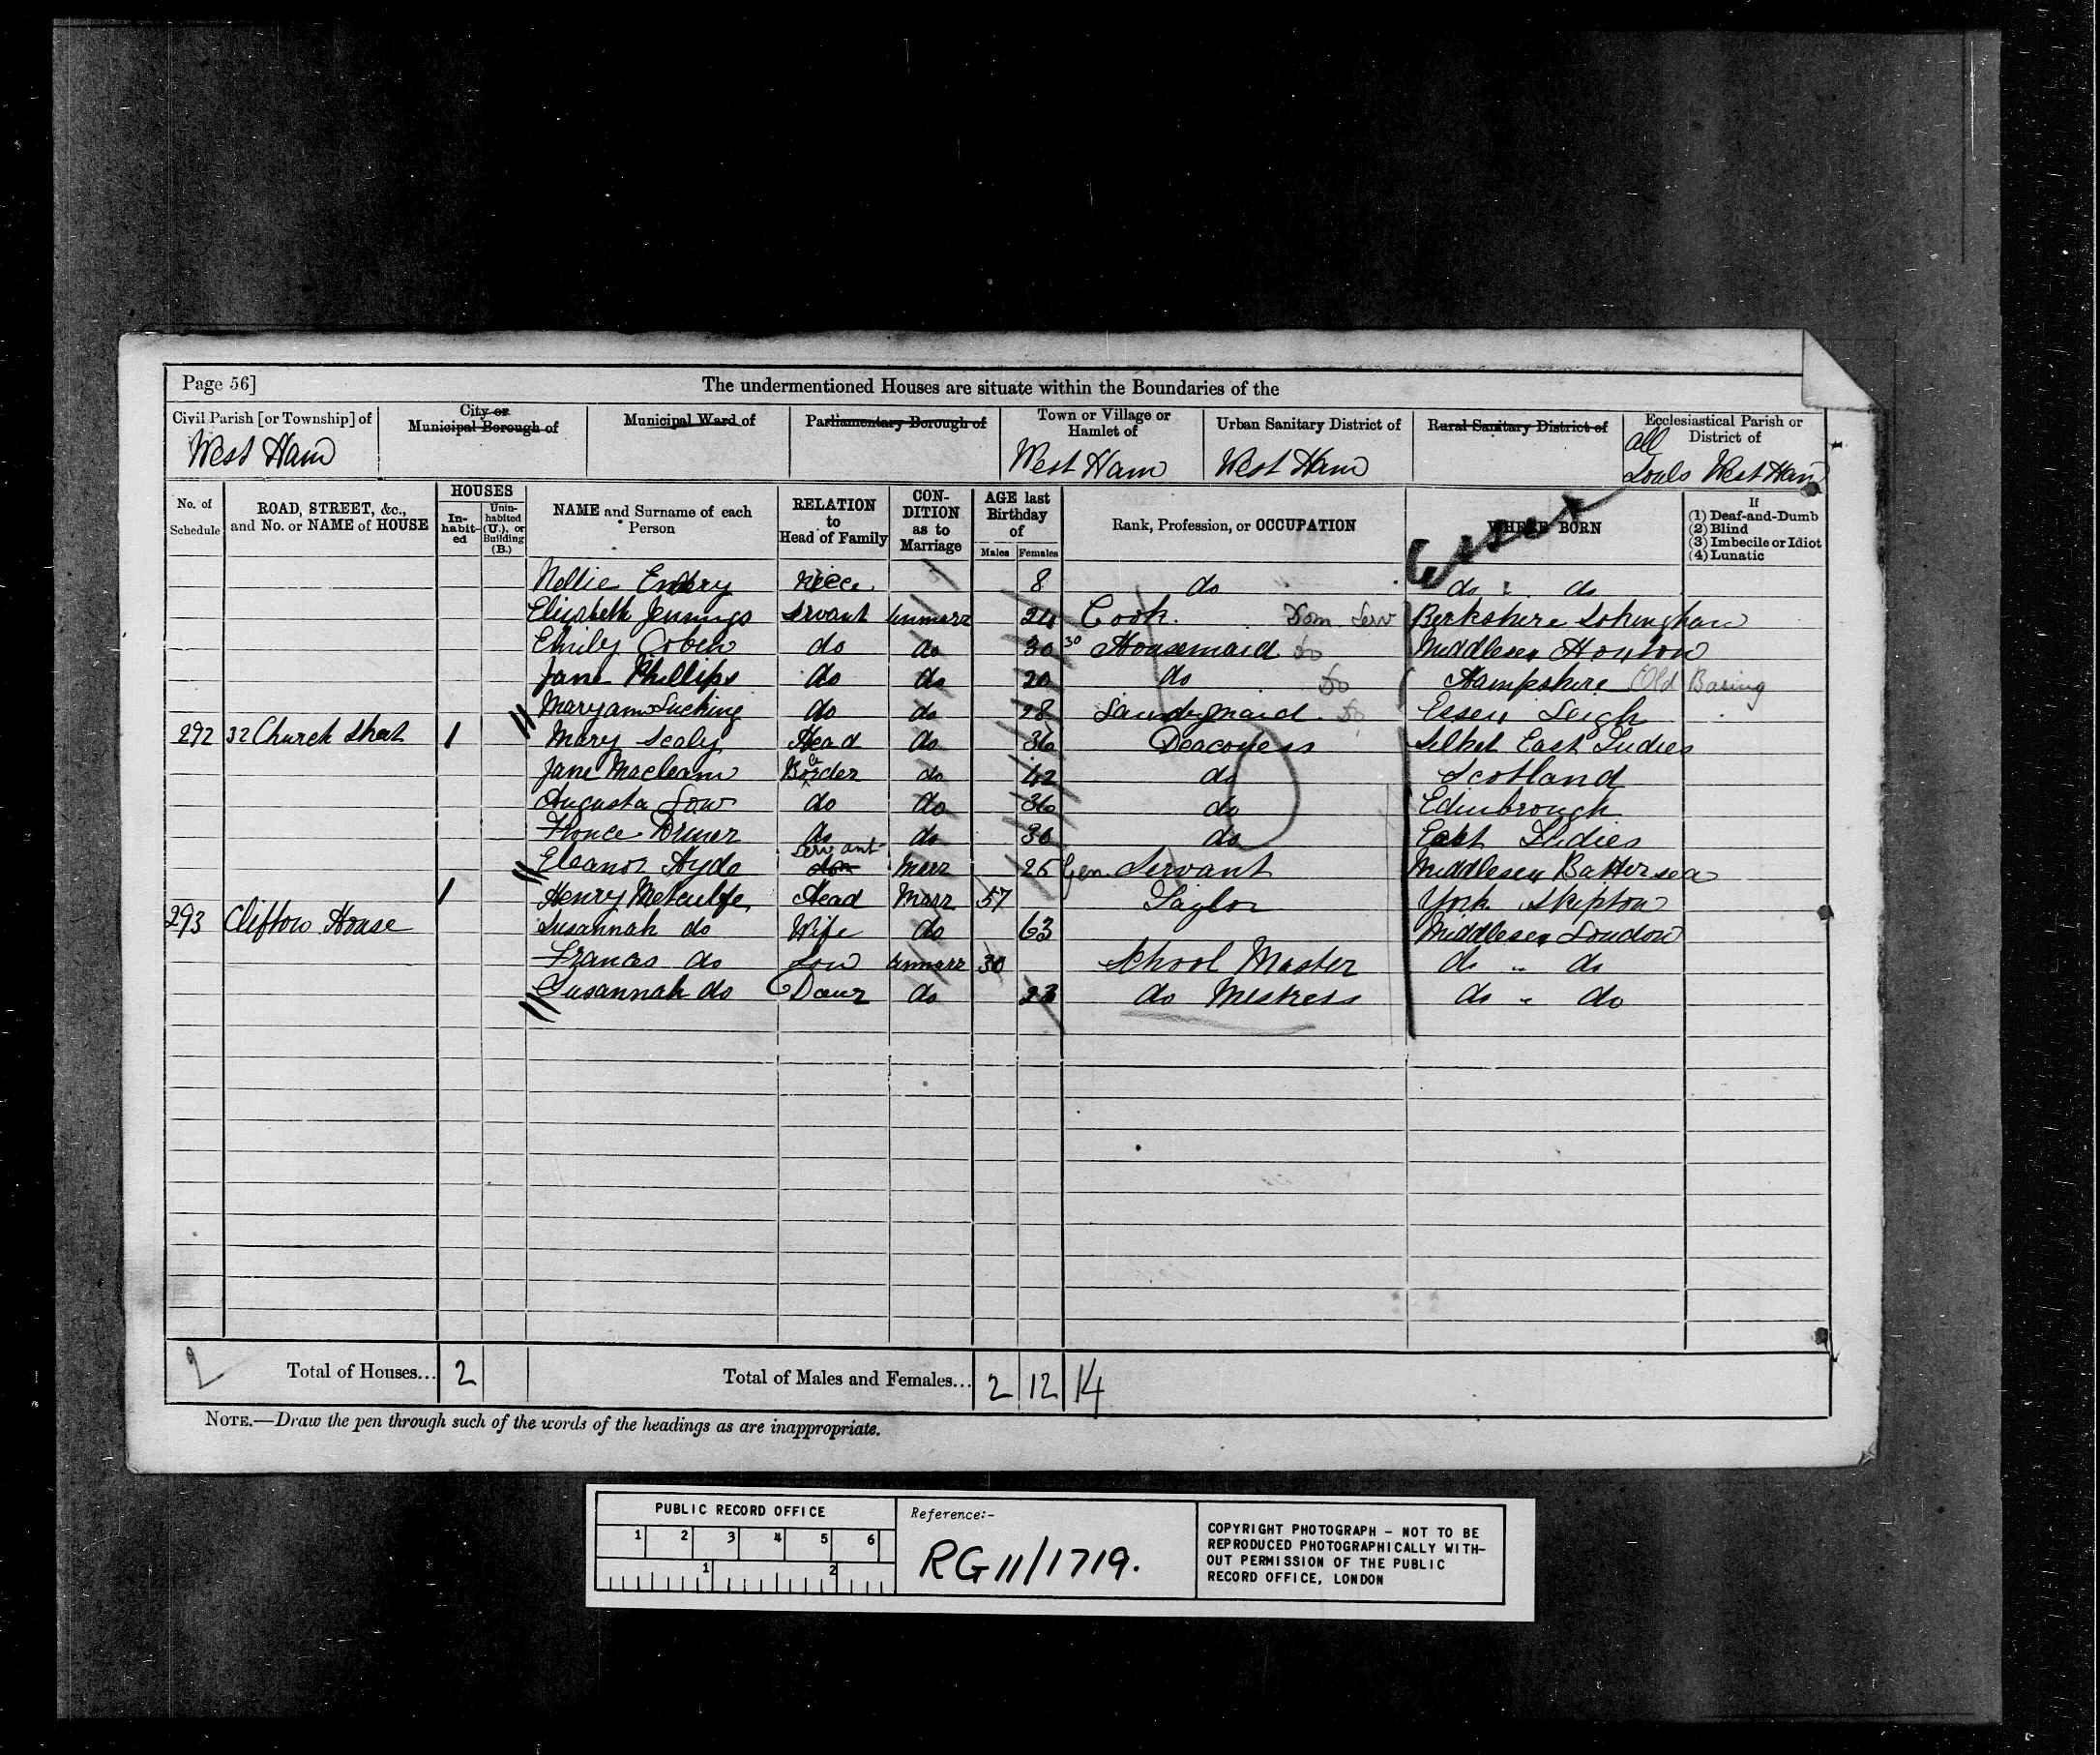 Page 56]
The undermentioned Houses are situate within the Boundaries of the
Civil Parish [or Township] of
City or Municipal Borough of
Municipal Ward of
Parliamentary Borough of
Town or Village or Hamlet of
Urban Sanitary District of
Rural Sanitary District of
Ecclesiastical Parish or District of
West Ham
West Ham
West Ham
All Souls West Ham
No. of Schedule
ROAD, STREET, &c., and No. or NAME of HOUSE
HOUSES
In-habit-ed
Unin-habited (U.), or Building (B.)
NAME and Surname of each Person
RELATION to Head of Family
CON-DITION as to Marriage
AGE last Birthday of
Males
Females
Rank, Profession, or OCCUPATION
WHERE BORN
If
(1) Deaf-and-Dumb
(2) Blind
(3) Imbecile or Idiot
(4) Lunatic
Essex
Nellie niece 8 do do " do
Elizabeth Jennings Servant Unmarr 24 Cook. Dom Serv Berkshire
Emily Coben do do 30 30 Housemaid Do Middlesex Hoxton
Jane Phillips do do 20 do Do Hampshire Old Basing
Maryann Lucking do do 28 Laundrymaid Do Essex Leigh
292 32 Church Street 1 Mary Scaly Head do 36 Deaconess Silhet East Indies
Jane Macleam Border a do 42 do Scotland
Augusta Low do do 36 do Edinbrough
do do 30 do East Indies
Eleanor Hyde do Servant Marr 25 Gen Servant Middlesex Battersea
1 Henry Metculfe Head Marr 57 Taylor York Skipton
293 Clifton House Susannah do Wife do 63 Middlesex London
Frances do Son Unmarr 30 School Master do " do
Susannah do Daur do 23 do Mistress do " do
2 Total of Houses... 2 Total of Males and Females... 2 12 14
NOTE.—Draw the pen through such of the words of the headings as are inappropriate.
PUBLIC RECORD OFFICE
1 2 3 4 5 6
1 2
Reference:-
RG 11/1719.
COPYRIGHT PHOTOGRAPH - NOT TO BE
REPRODUCED PHOTOGRAPHICALLY WITH-
OUT PERMISSION OF THE PUBLIC
RECORD OFFICE, LONDON